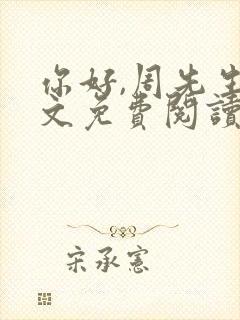 你好,周先生
文免費閱讀
宋承憲